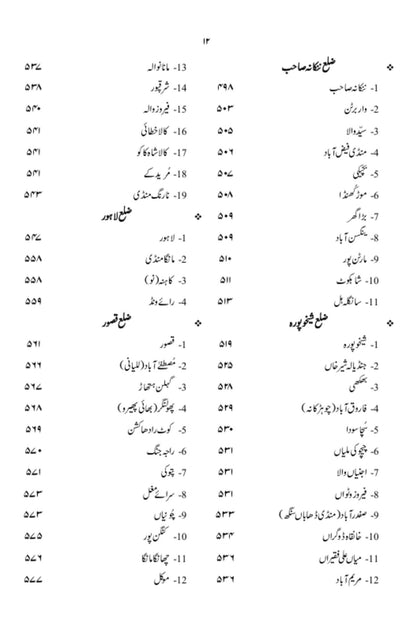 ۱۲
❖ ضلع ننکانہ صاحب
1- ننکانہ صاحب ۴۹۸
2- واربرٹن ۵۰۳
3- سیّدوالا ۵۰۵
4- منڈی فیض آباد ۵۰۶
5- بچیکی ۵۰۷
6- موڑ کھنڈا ۵۰۸
7- بڑا گھر ۵۰۹
8- ینگسن آباد ۵۰۹
9- مارٹن پور ۵۱۰
10- شاہکوٹ ۵۱۱
11- سانگلہ ہل ۵۱۳
❖ ضلع شیخوپورہ
1- شیخوپورہ ۵۱۹
2- جنڈیالہ شیر خاں ۵۲۵
3- بھکھی ۵۲۸
4- فاروق آباد (چوہڑکانہ) ۵۲۹
5- سُچا سودا ۵۳۰
6- چیچو کی ملیاں ۵۳۱
7- اجنیاں والا ۵۳۱
8- فیروز وٹواں ۵۳۱
9- صفدر آباد (منڈی ڈھاباں سنگھ) ۵۳۳
10- خانقاہ ڈوگراں ۵۳۴
11- میاں علی فقیراں ۵۳۶
12- مریم آباد ۵۳۶
13- مانانوالہ ۵۳۷
14- شرقپور ۵۳۸
15- فیروز والہ ۵۴۰
16- کالا خطائی ۵۴۱
17- کالا شاہ کاکو ۵۴۱
18- مُریدکے ۵۴۱
19- نارنگ منڈی ۵۴۳
❖ ضلع لاہور
1- لاہور ۵۴۷
2- مانگا منڈی ۵۵۸
3- کاہنہ (نو) ۵۵۸
4- رائے ونڈ ۵۵۹
❖ ضلع قصور
1- قصور ۵۶۱
2- مُصطفےٰ آباد (للیانی) ۵۶۶
3- گہلن ہتھاڑ ۵۶۷
4- پھولنگر (بھائی پھیرو) ۵۶۸
5- کوٹ رادھا کشن ۵۶۹
6- راجہ جنگ ۵۷۰
7- پتوکی ۵۷۱
8- سرائے مغل ۵۷۳
9- چُونیاں ۵۷۳
10- کنگن پور ۵۷۵
11- چھانگا مانگا ۵۷۶
12- موکل ۵۷۷